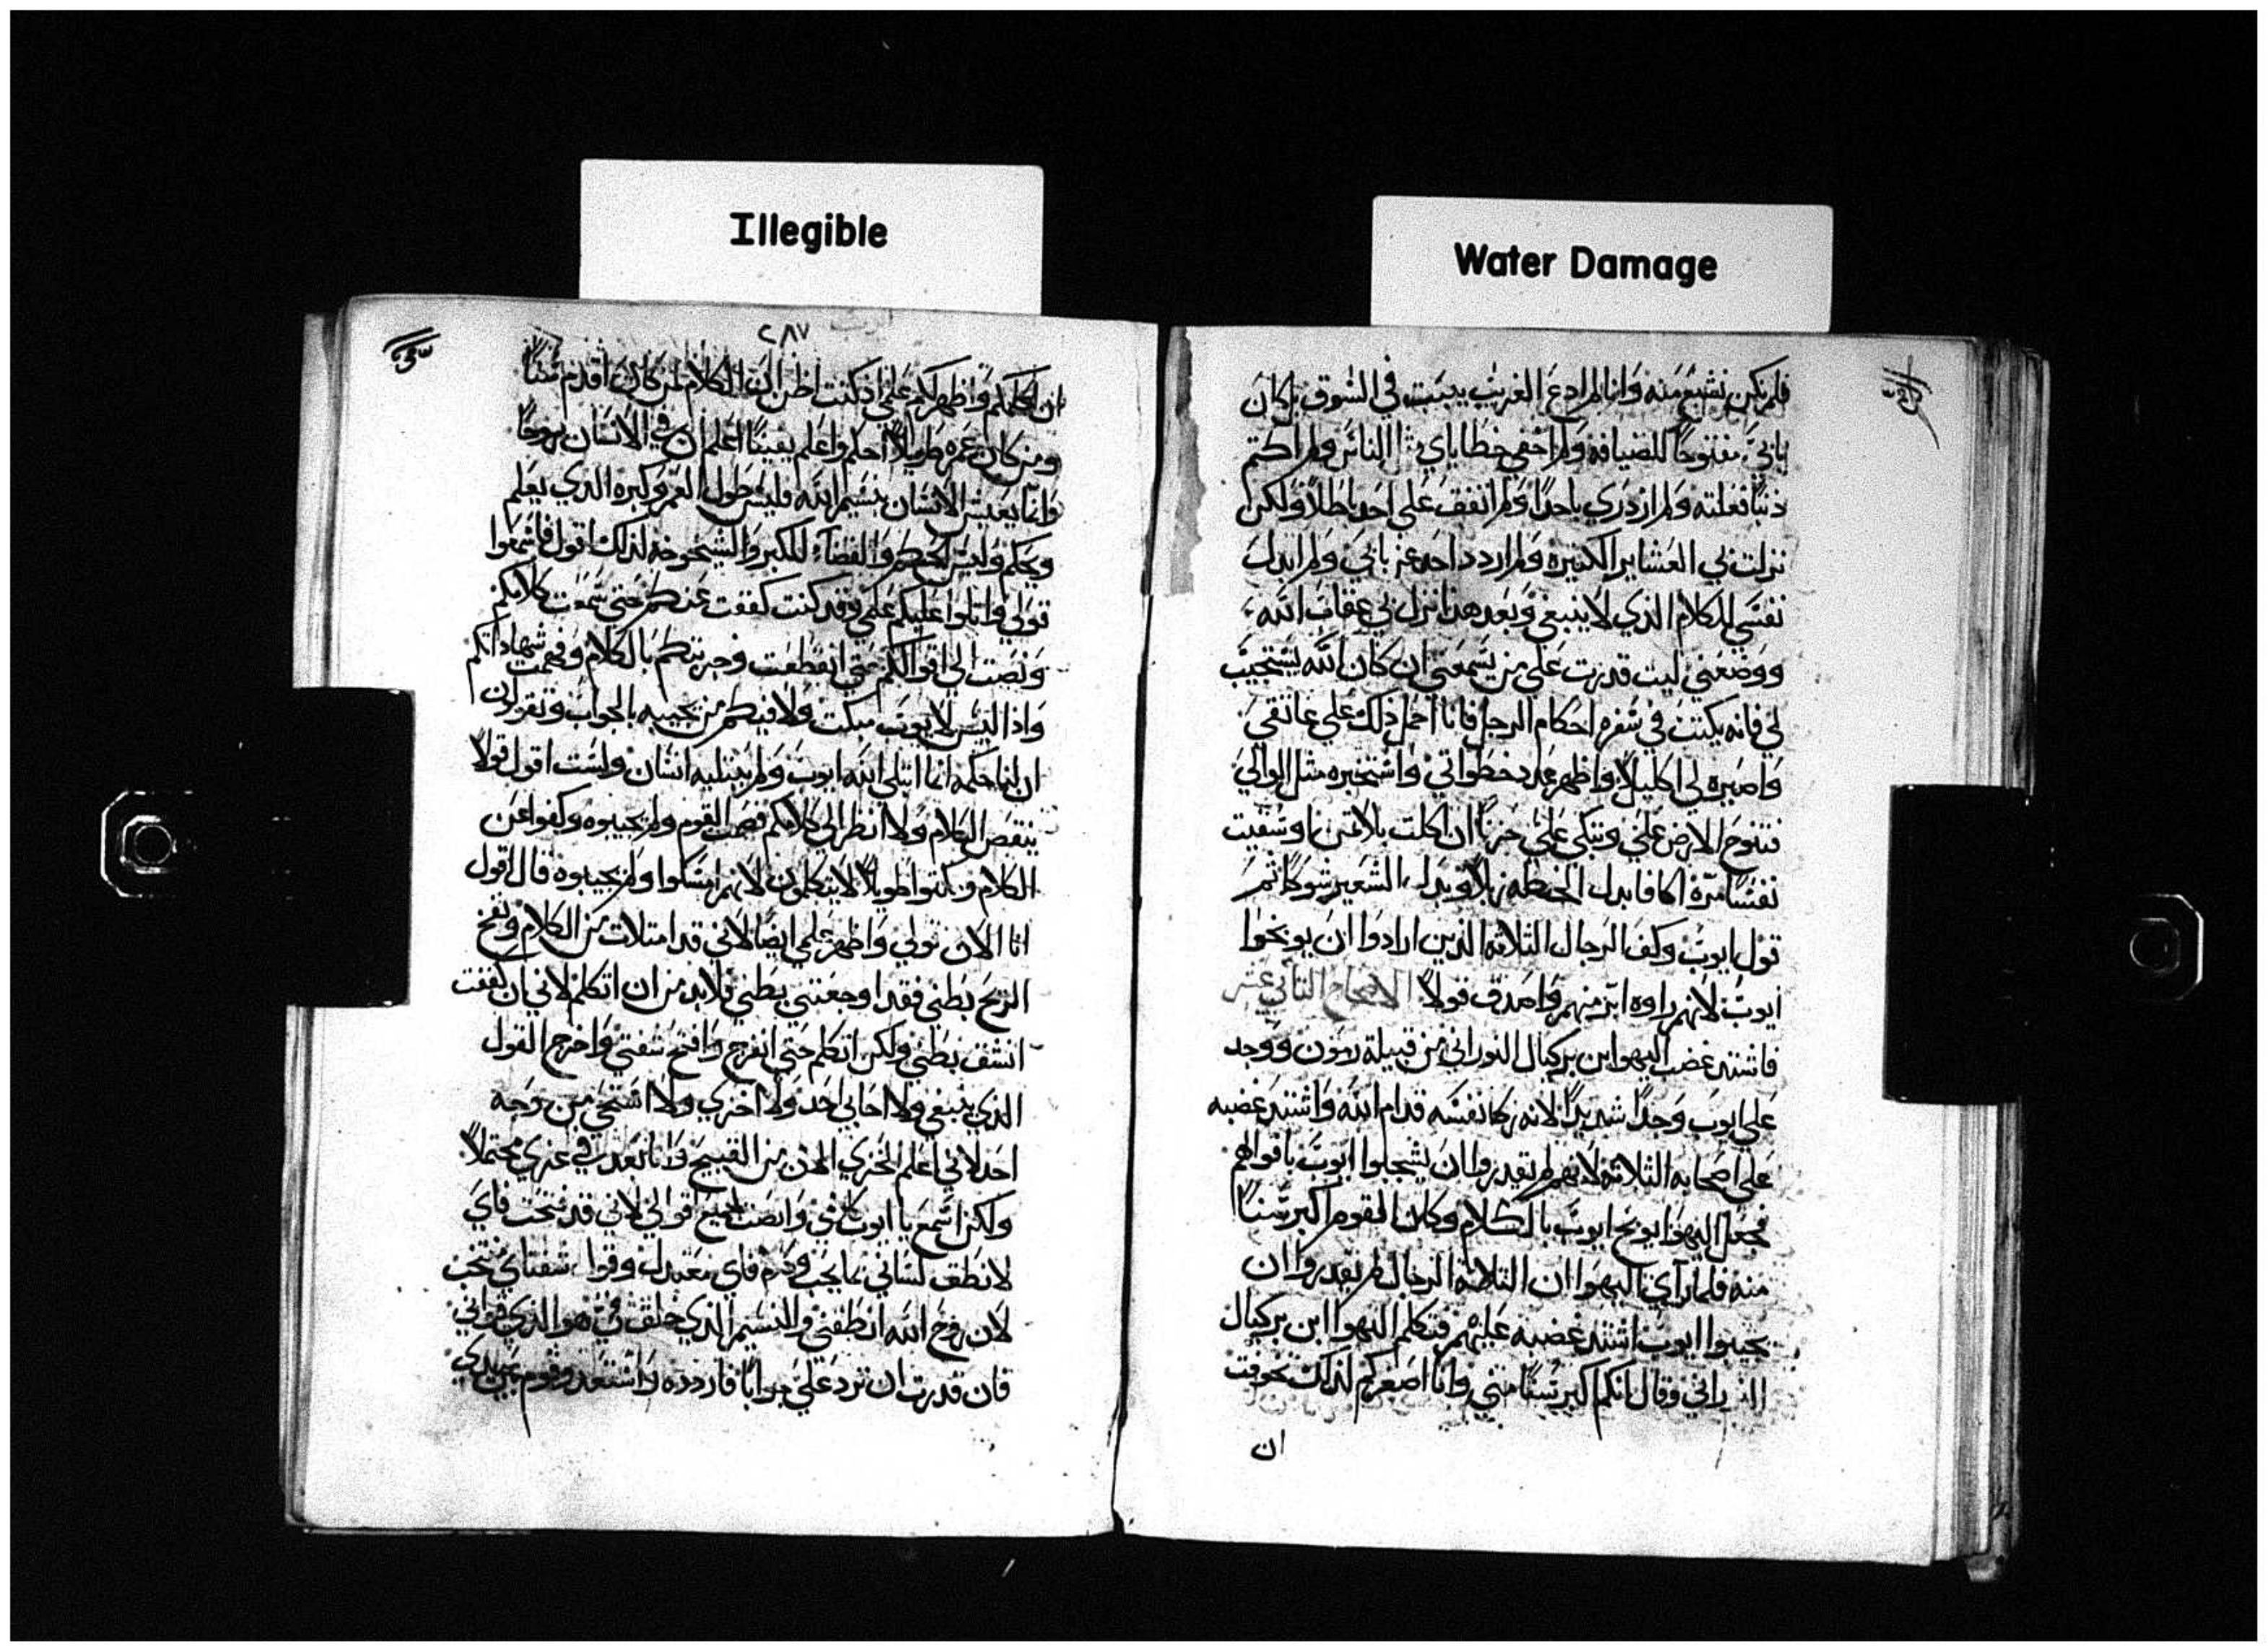 Illegible
Water Damage
فلم نكن نشبع منه وانا لم ادع الغريب يبيت في السوق بل كان
بابي مفتوحا للضيافه ولم اخفي خطاياي الناس ولم اكتم
ذنبا فعلته ولم ازدري باحدا ولم اتفق على احد باطلا ولكن
نزلت بي العشاير الكتيره ولم اردد احد عن بابي ولم ابدل
نفسي للكلام الذي لا ينبغي وبعد هذا نزل بي عقاب الله
ووضعني ليت قدرت على من يسمعني ان كان الله يستجيب
لي فانه يكتب في سفره احكام الرجل فانا احمل ذلك على عاتقي
واصيره لي اكليلا واظهر عدد خطواتي واستخبره مثل الوالي
فتنوح الارض علي وتبكي علي حزنا ان اكلت بلا ثمن او سقيت
نفسا مرة اكافا بدل الحنطه زبلا وبدل الشعير شوكا تم
قول ايوب وكف الرجال الثلاثه الذين ارادوا ان يوبخوا
ايوب لانهم راوه ابر منهم واصدق قولا الاصحاح الثاني عشر
فاشتد غضب اليهوا بن بركيال النوراني من قبيلة رمون ووجد
على ايوب وجدا شديدا لانه زكا نفسه قدام الله واشتد غضبه
على اصحابه الثلاثه لانهم لم يقدروا ان يشجلوا ايوب بافواههم
فجعل اليهوا يوبخ ايوب بالكلام وكان القوم اكبر سنا
منه فلما راي اليهوا ان الثلاثة الرجال لم يقدروا ان
يجيبوا ايوب اشتد غضبه عليهم فتكلم اليهوا ابن بركيال
وقال انكم اكبر سنا مني وانا اصغركم لذلك تخوفت
ان
٢٨٧
ان اكلمكم واظهر لكم علمي اذ كنت اظن ان الكلام لمن كان اقدم سنا
ومن كان عمره طويلا احلم واعلم يقينا اعلم ان في الانسان روحا
وانما يعيش الانسان بنسيم الله فليس طول العمر وكبره الذي يعلم
ويحكم وليس الحكم والقضاء للكبر والشيخوخه لذلك اقول فاسمعوا
قولي واتلوا عليكم علمي وقد كنت كففت عنكم حتى سمعت كلامكم
ونصت الى اقوالكم حتى انقطعت وجربتكم بالكلام وفهمت شهاداتكم
واذا ليس لايوب مبكت ولا فيكم من يجيبه بالجواب وتقولون
ان لنا حكمه انما ابتلى الله ايوب ولم يبتليه انسان ولست اقول قولا
ينقص الكلام ولا انظر الى كلامكم فصمت القوم ولم يجيبوه وكفوا عن
الكلام وسكتوا طويلا لا يتكلمون لانهم امسكوا ولم يجيبوه قال اقول
انا الان قولي واظهر علمي ايضا لاني قد امتلات من الكلام ونفخ
الريح بطني فقد اوجعتني بطني فلابد من ان اتكلم لاني ان كففت
انشقت بطني ولكن اتكلم حتى انفرج وافتح شفتي واخرج القول
الذي ينبغي ولا احابي احد ولا اخزي ولا استحي من وجه
احد لاني اعلم الخزي من القبيح وانا بعد في عزي محتملا
ولكن اسمع يا ايوب كلامي وانصت لجميع اقوالي لاني قد فتحت فاي
لانطق لساني بما يجب فاي معتدل وقوا شفتاي تنتخب
لان روح الله انطقني والنسيم الذي خلق في هو الذي قواني
فان قدرت ان ترد علي جوابا فاردده واستعد وقوم بين يدي